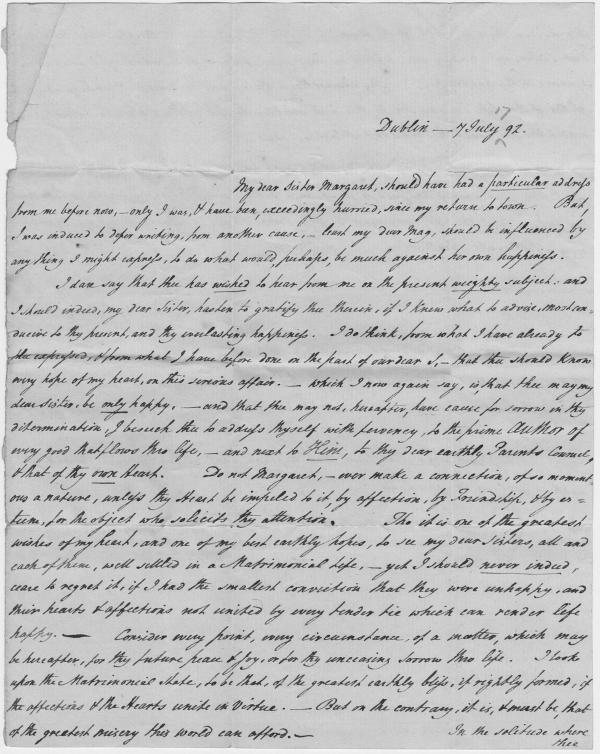 17
Dublin — 7 July 92.
My dear Sister Margaret, should have had a particular address
from me before now, — only I was, & have been, exceedingly hurried, since my return to town. But,
I was induced to defer writing, from another cause, — least my dear Mag, should be influenced by
any thing I might express, to do what would, perhaps, be much against her own happiness.
I dare say that thee has wished to hear from me on the present weighty subject: and
I should indeed, my dear Sister, hasten to gratify thee therein, if I knew what to advise, most con-
ducive to thy present, and thy everlasting happiness. I do think, from what I have already to
thee expressed, & from what I have before done on the part of our dear S, — that thee should know
every hope of my heart, on this serious affair. — which I now again say, is that thee may my
dear Sister, be only happy, — and that thee may not, hereafter, have cause for sorrow in thy
determination, I beseech thee to address thyself with fervency, to the prime Author of
every good that flows thro life, — and next to Him, to thy dear earthly Parents Counsel,
& that of thy own Heart. Do not Margaret, — ever make a connection, of so moment
ous a nature, unless thy Heart be impelled to it, by affection, by Friendship, & by es-
teem, for the object who solicits thy attention. Tho it is one of the greatest
wishes of my heart, and one of my best earthly hopes, to see my dear Sisters, all and
each of them, well settled in a Matrimonial Life, — yet I should never indeed,
cease to regret it, if I had the smallest conviction that they were unhappy, and
their hearts & affections not united by every tender tie which can render life
happy. — Consider every point, every circumstance, of a matter, which may
be hereafter, for thy future peace & Joy, or for thy unceasing Sorrow thro life. I look
upon the Matrimonial State, to be that, of the greatest earthly bliss, if rightly formed, if
the affections & the Hearts unite in Virtue. — But on the contrary, it is, & must be, that
of the greatest misery this world can afford. — In the solitude where
thee